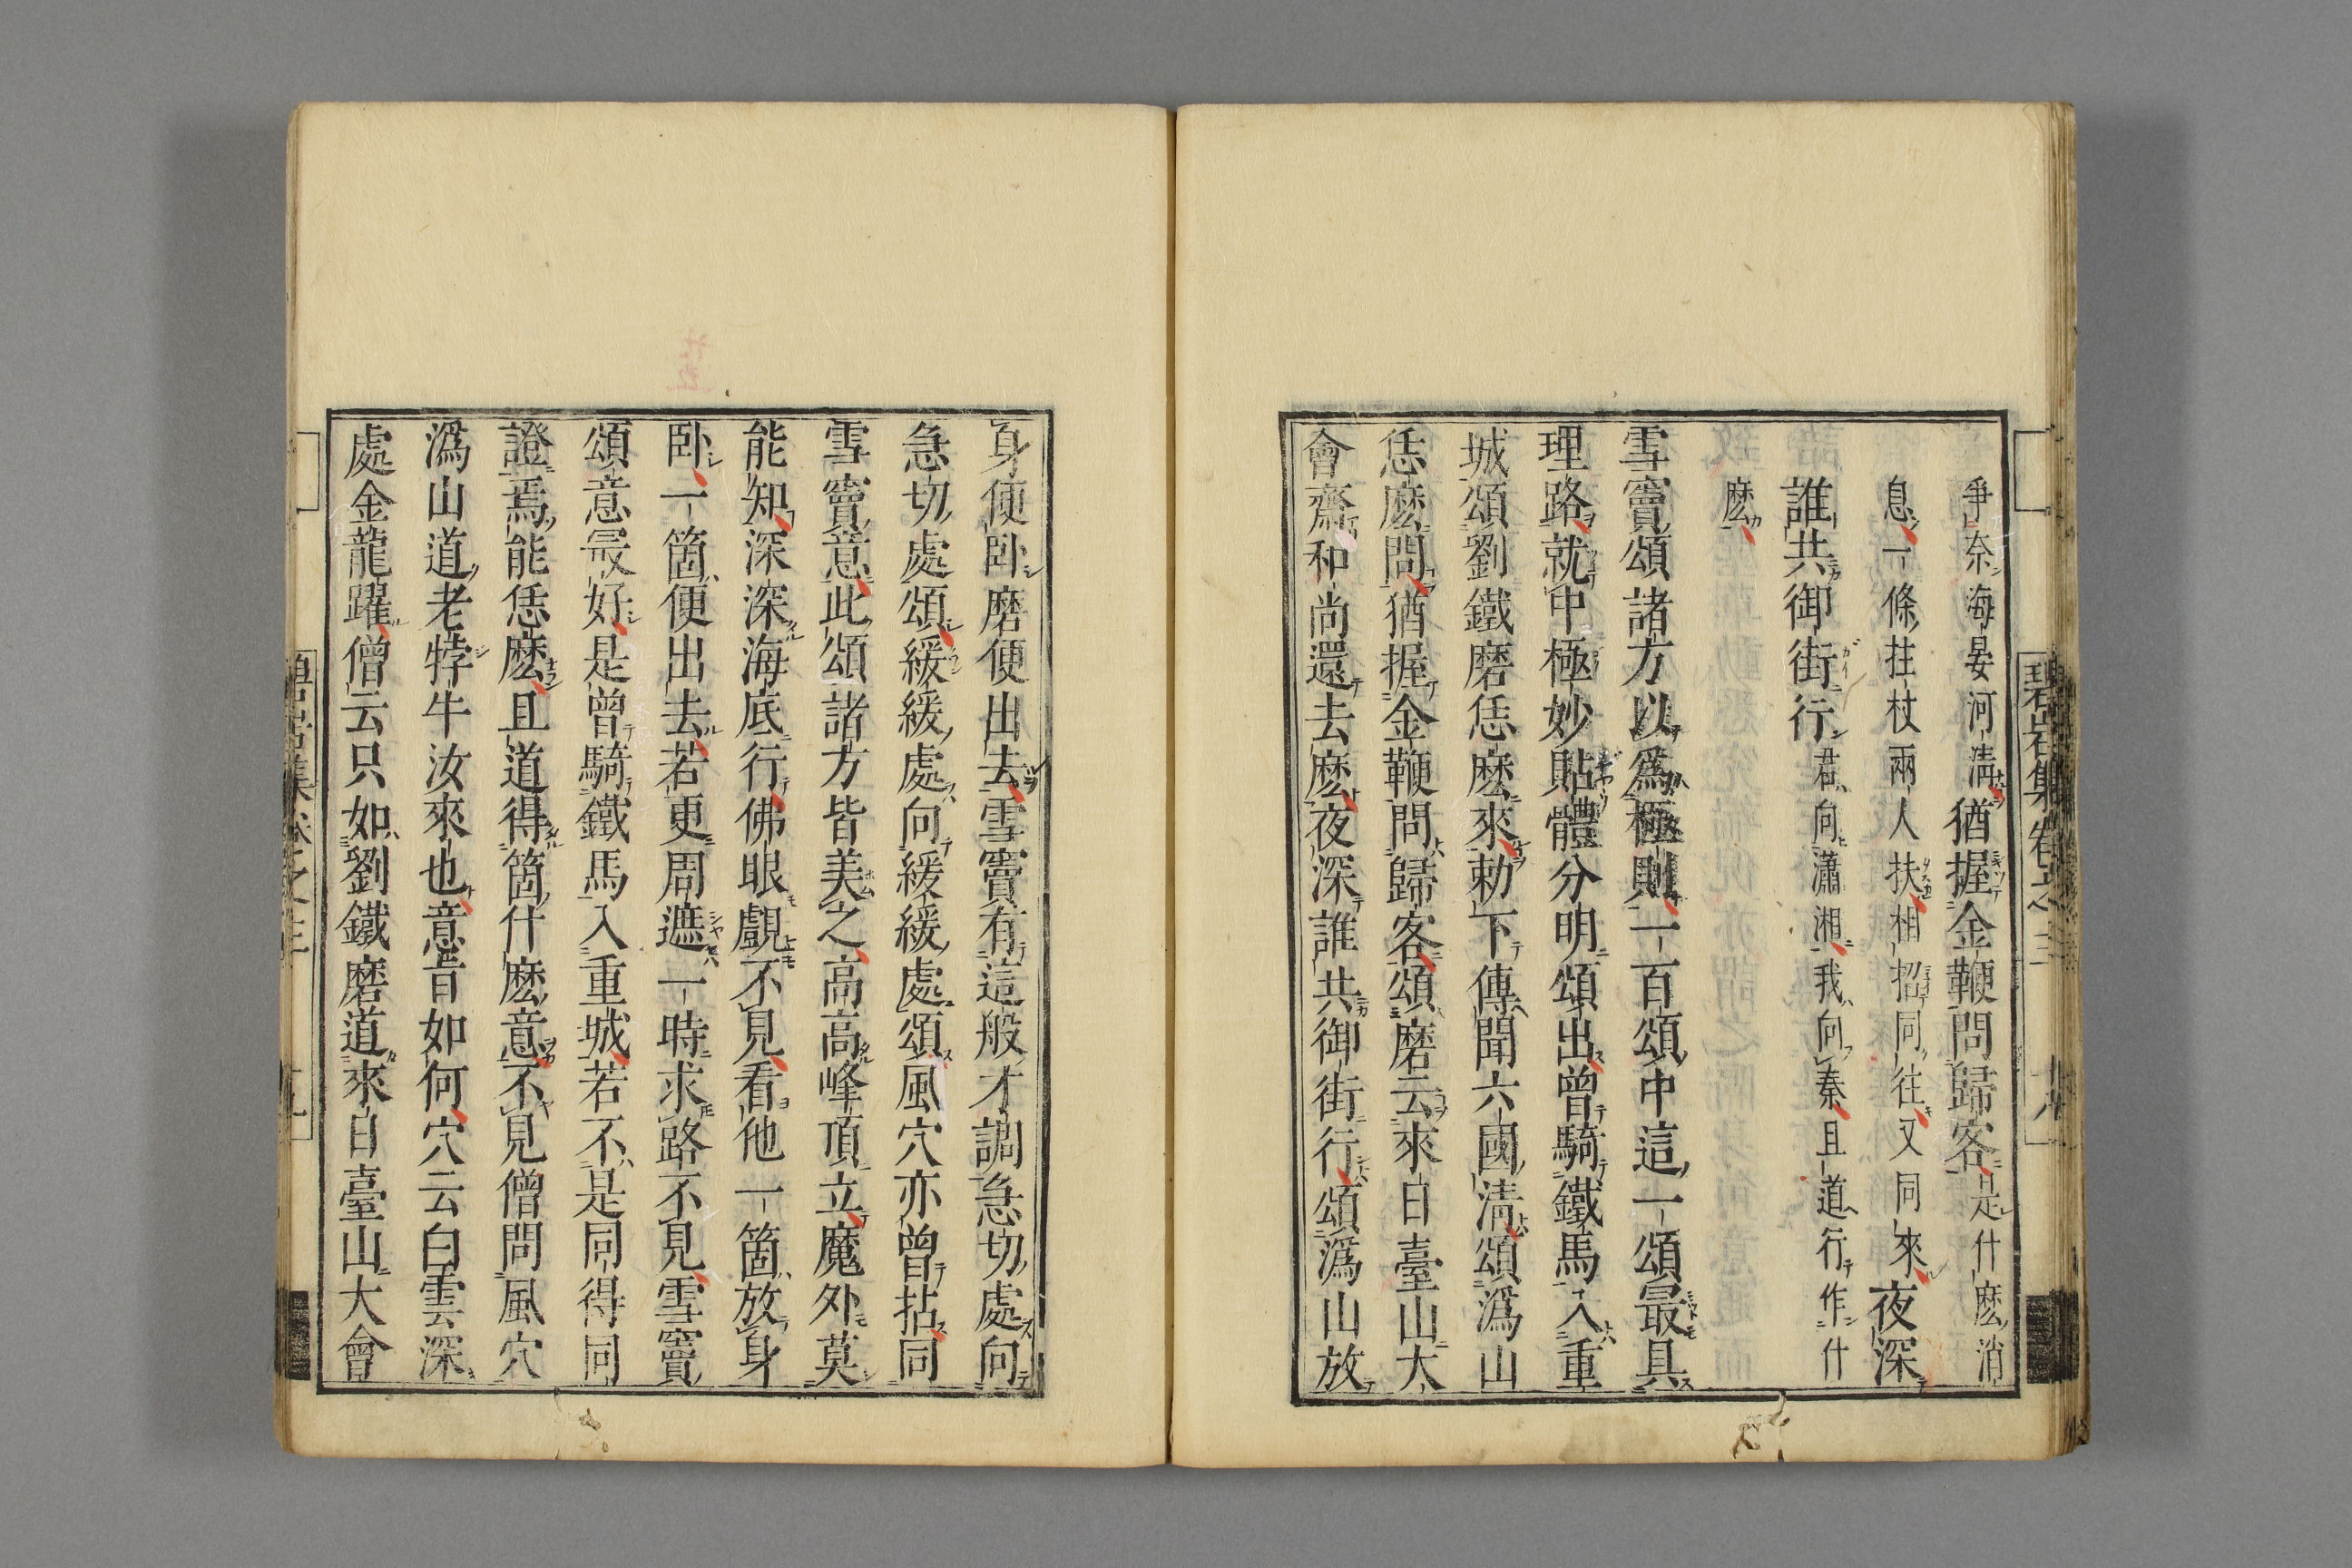 爭奈海晏河清猶握金鞭問歸客是什麽消
息一條拄杖兩人扶相招同往又同來夜深
誰共御街行君向瀟湘我向秦且道行作什
麽
雪竇頌諸方以爲極則一百頌中這一頌最具
理路就中極妙貼體分明頌出曾騎鐵馬入重
城頌劉鐵磨恁麽來勅下傳聞六國清頌潙山
恁麽問猶握金鞭問歸客頌磨云來日臺山大
會齋和尚還去麽夜深誰共御街行頌潙山放
碧岩集卷之三
身便卧磨便出去雪竇有這般才調急切處向
急切處頌緩緩處向緩緩處頌風穴亦曾拈同
雪竇意此頌諸方皆美之高高峰頂立魔外莫
能知深深海底行佛眼覷不見看他一箇放身
卧一箇便出去若更周遮一時求路不見雪竇
頌意最好是曾騎鐵馬入重城若不是同得同
證焉能恁麽且道得箇什麽意不見僧問風穴
潙山道老牸牛汝來也意旨如何穴云白雲深
處金龍躍僧云只如劉鐵磨道來日臺山大會